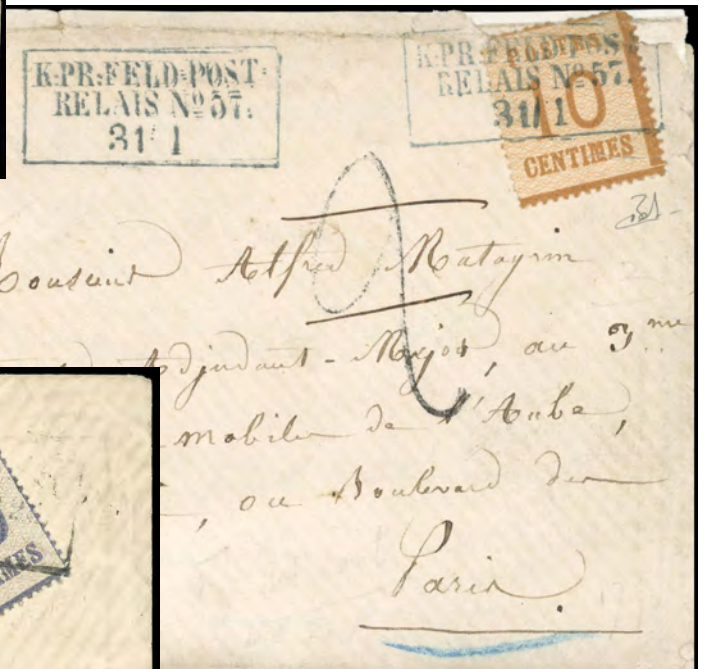 K:PR:FELD=POST=
RELAIS No 57.
31/1
K:PR:FELD=POST=
RELAIS No 57.
31/1
POSTES
10
CENTIMES
Monsieur Alfred Matagrin
Adjudant-Major, au 3me
mobile de l'Aube,
, ou Boulevard des
Paris
2